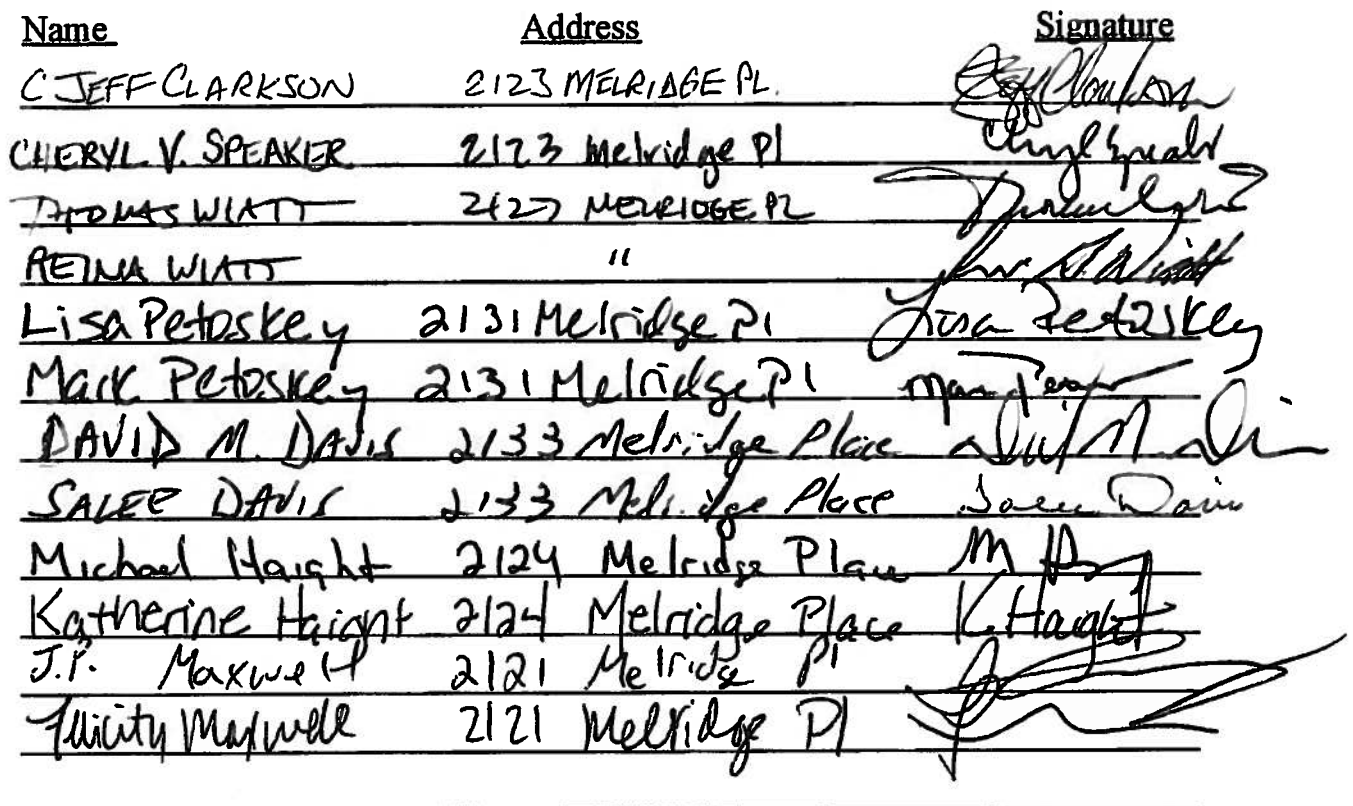 Name Address Signature
C JEFF CLARKSON 2123 MELRIDGE PL.
CHERYL V. SPEAKER 2123 Melridge Pl Cheryl Speaker
THOMAS WIATT 2127 MELRIDGE PL
REINA WIATT "
Lisa Petoskey 2131 Melridge Pl Lisa Petoskey
Mark Petoskey 2131 Melridge Pl
DAVID M. DAVIS 2133 Melridge Place
SALEE DAVIS 2133 Melridge Place Salee Davis
Michael Haight 2124 Melridge Place
Katherine Haight 2124 Melridge Place K. Haight
J.P. Maxwell 2121 Melridge Pl
Felicity Maxwell 2121 Melridge Pl